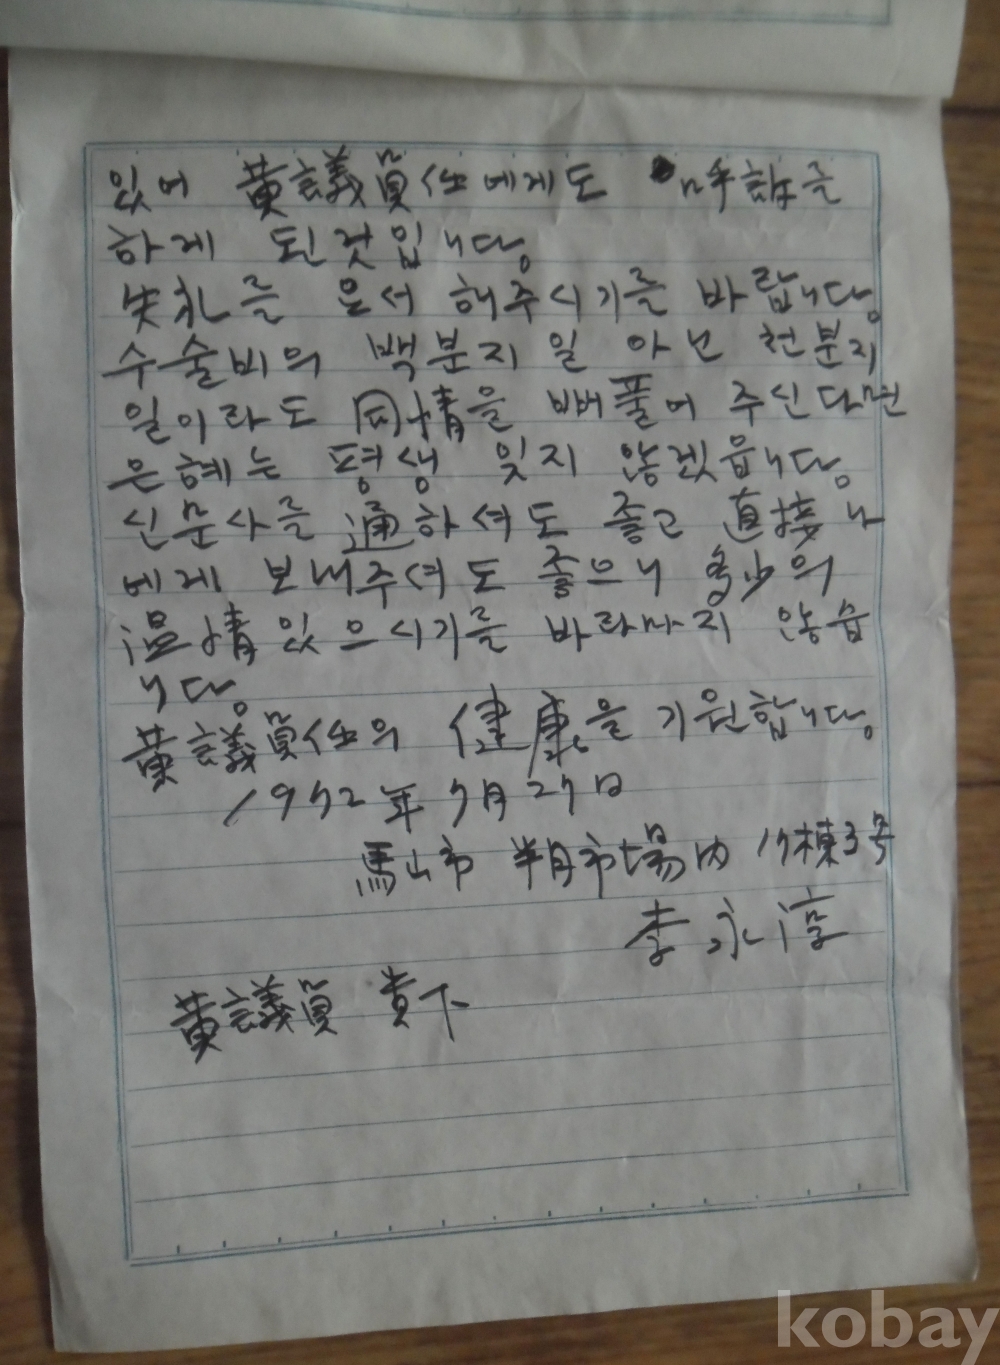 있어 黃議員任에게도 呼訴를
하게 된것입니다.
失礼를 용서 해주시기를 바랍니다.
수술비의 백분지 일 아닌 천분지
일이라도 同情을 뻐풀어 주신다면
은혜는 평생 잊지 않겠읍니다.
신문사를 通하셔도 좋고 直接 나
에게 보내주셔도 좋으니 多少의
温情 있으시기를 바라마지 않습
니다.
黃議員任의 健康을 기원합니다.
1972年 7月 27日
馬山市 半月市場内 17棟3号
李永淳
黃議員 貴下
kobay